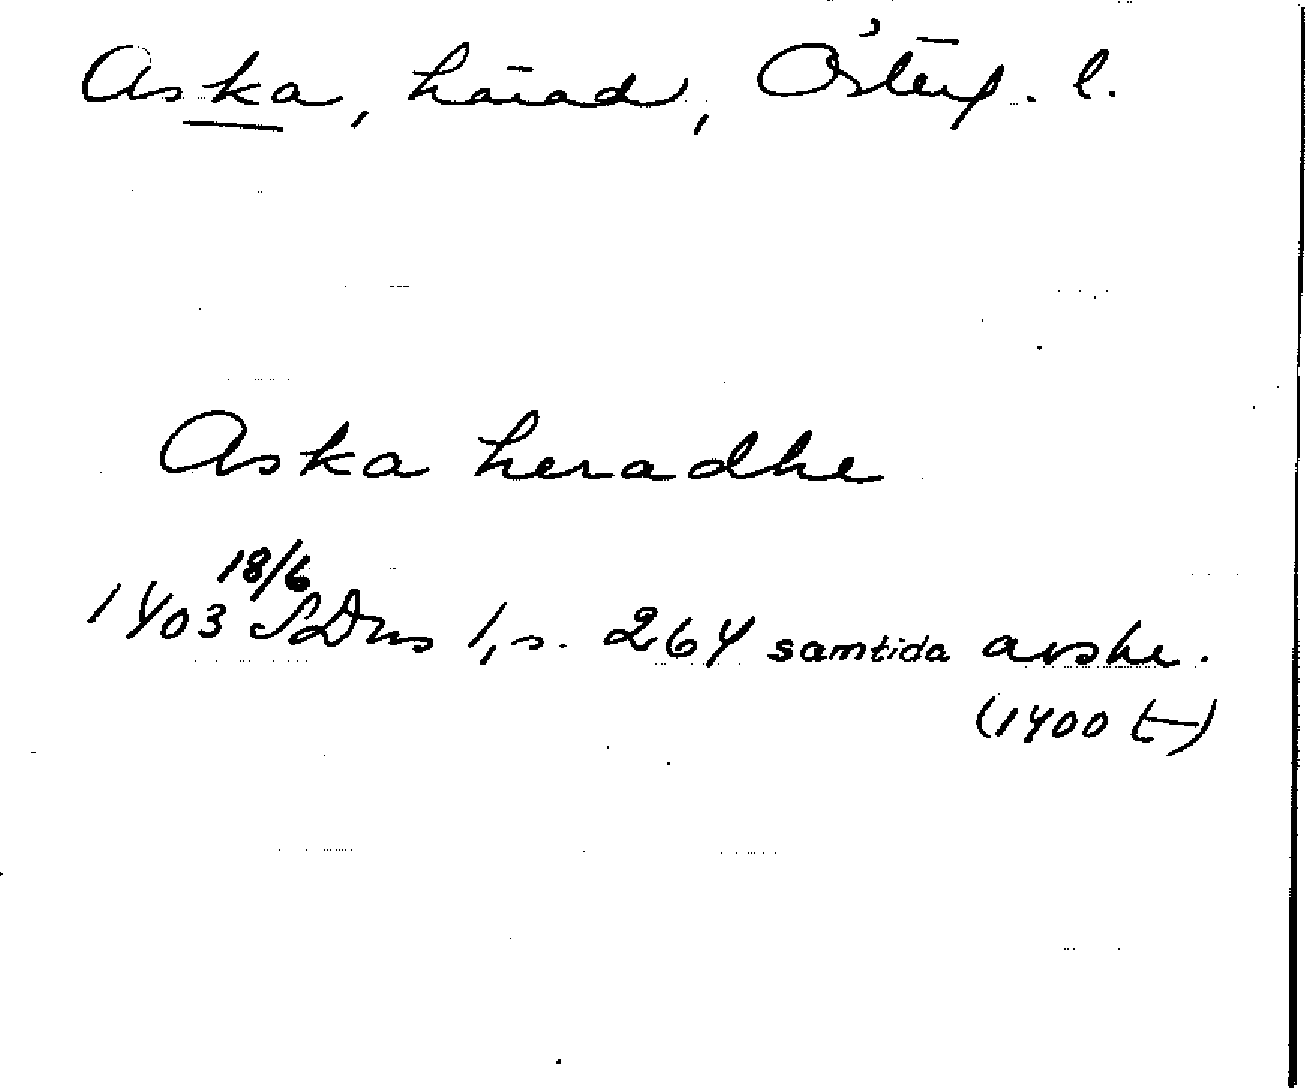 Aska, härad, Östergl.
Aska heradhe
18/6
1403 SDns 1, s. 264 samtida avskr.
(1400 t)